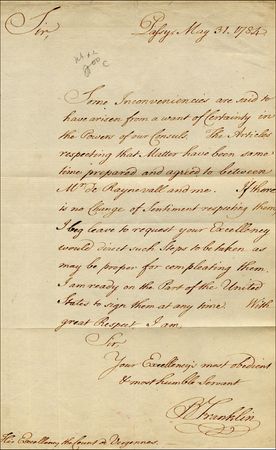 Sir,
Passy, May 31. 1784
Some Inconveniencies are said to
have arisen from a want of Certainty in
the Powers of our Consuls. The Articles
respecting that Matter have been some
time prepared and agreed to between
Mr. de Raynevall and me. If there
is no Change of Sentiment respecting them
I beg leave to request your Excellency
would direct such Steps to be taken as
may be proper for compleating them.
I am ready on the Part of the United
States to sign them at any time. With
great Respect I am.
Sir.
Your Excellency's most obedient
& most humble Servant
B Franklin
His Excellency the Count de Vergennes.